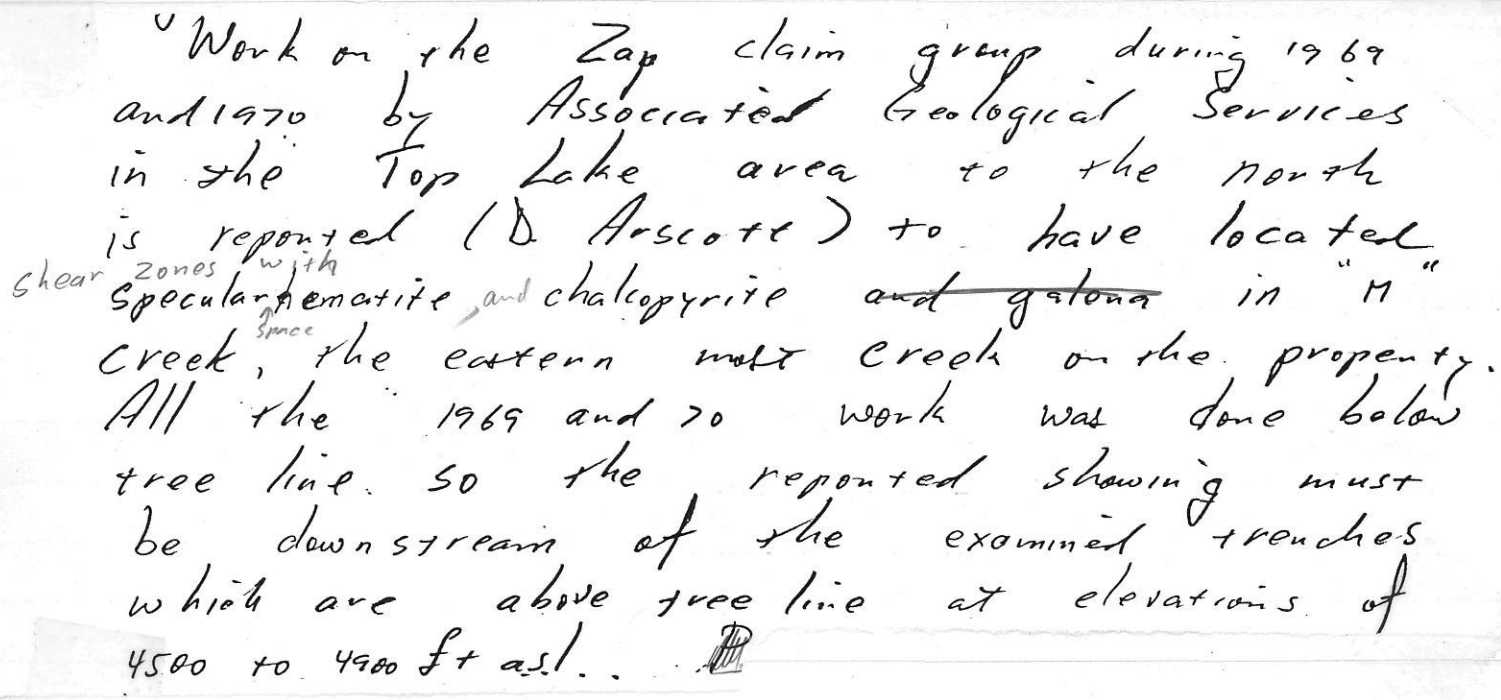 "Work on the Zap claim group during 1969
and 1970 by Associated Geological Services
in the Top Lake area to the north
is reported (D. Arscott) to have located
shear zones with
specular hematite, and chalcopyrite and galena in "M"
space
Creek, the eastern most creek on the property.
All the 1969 and 70 work was done below
tree line. so the reported showing must
be downstream of the examined trenches
which are above tree line at elevations of
4500 to 4900 ft asl..